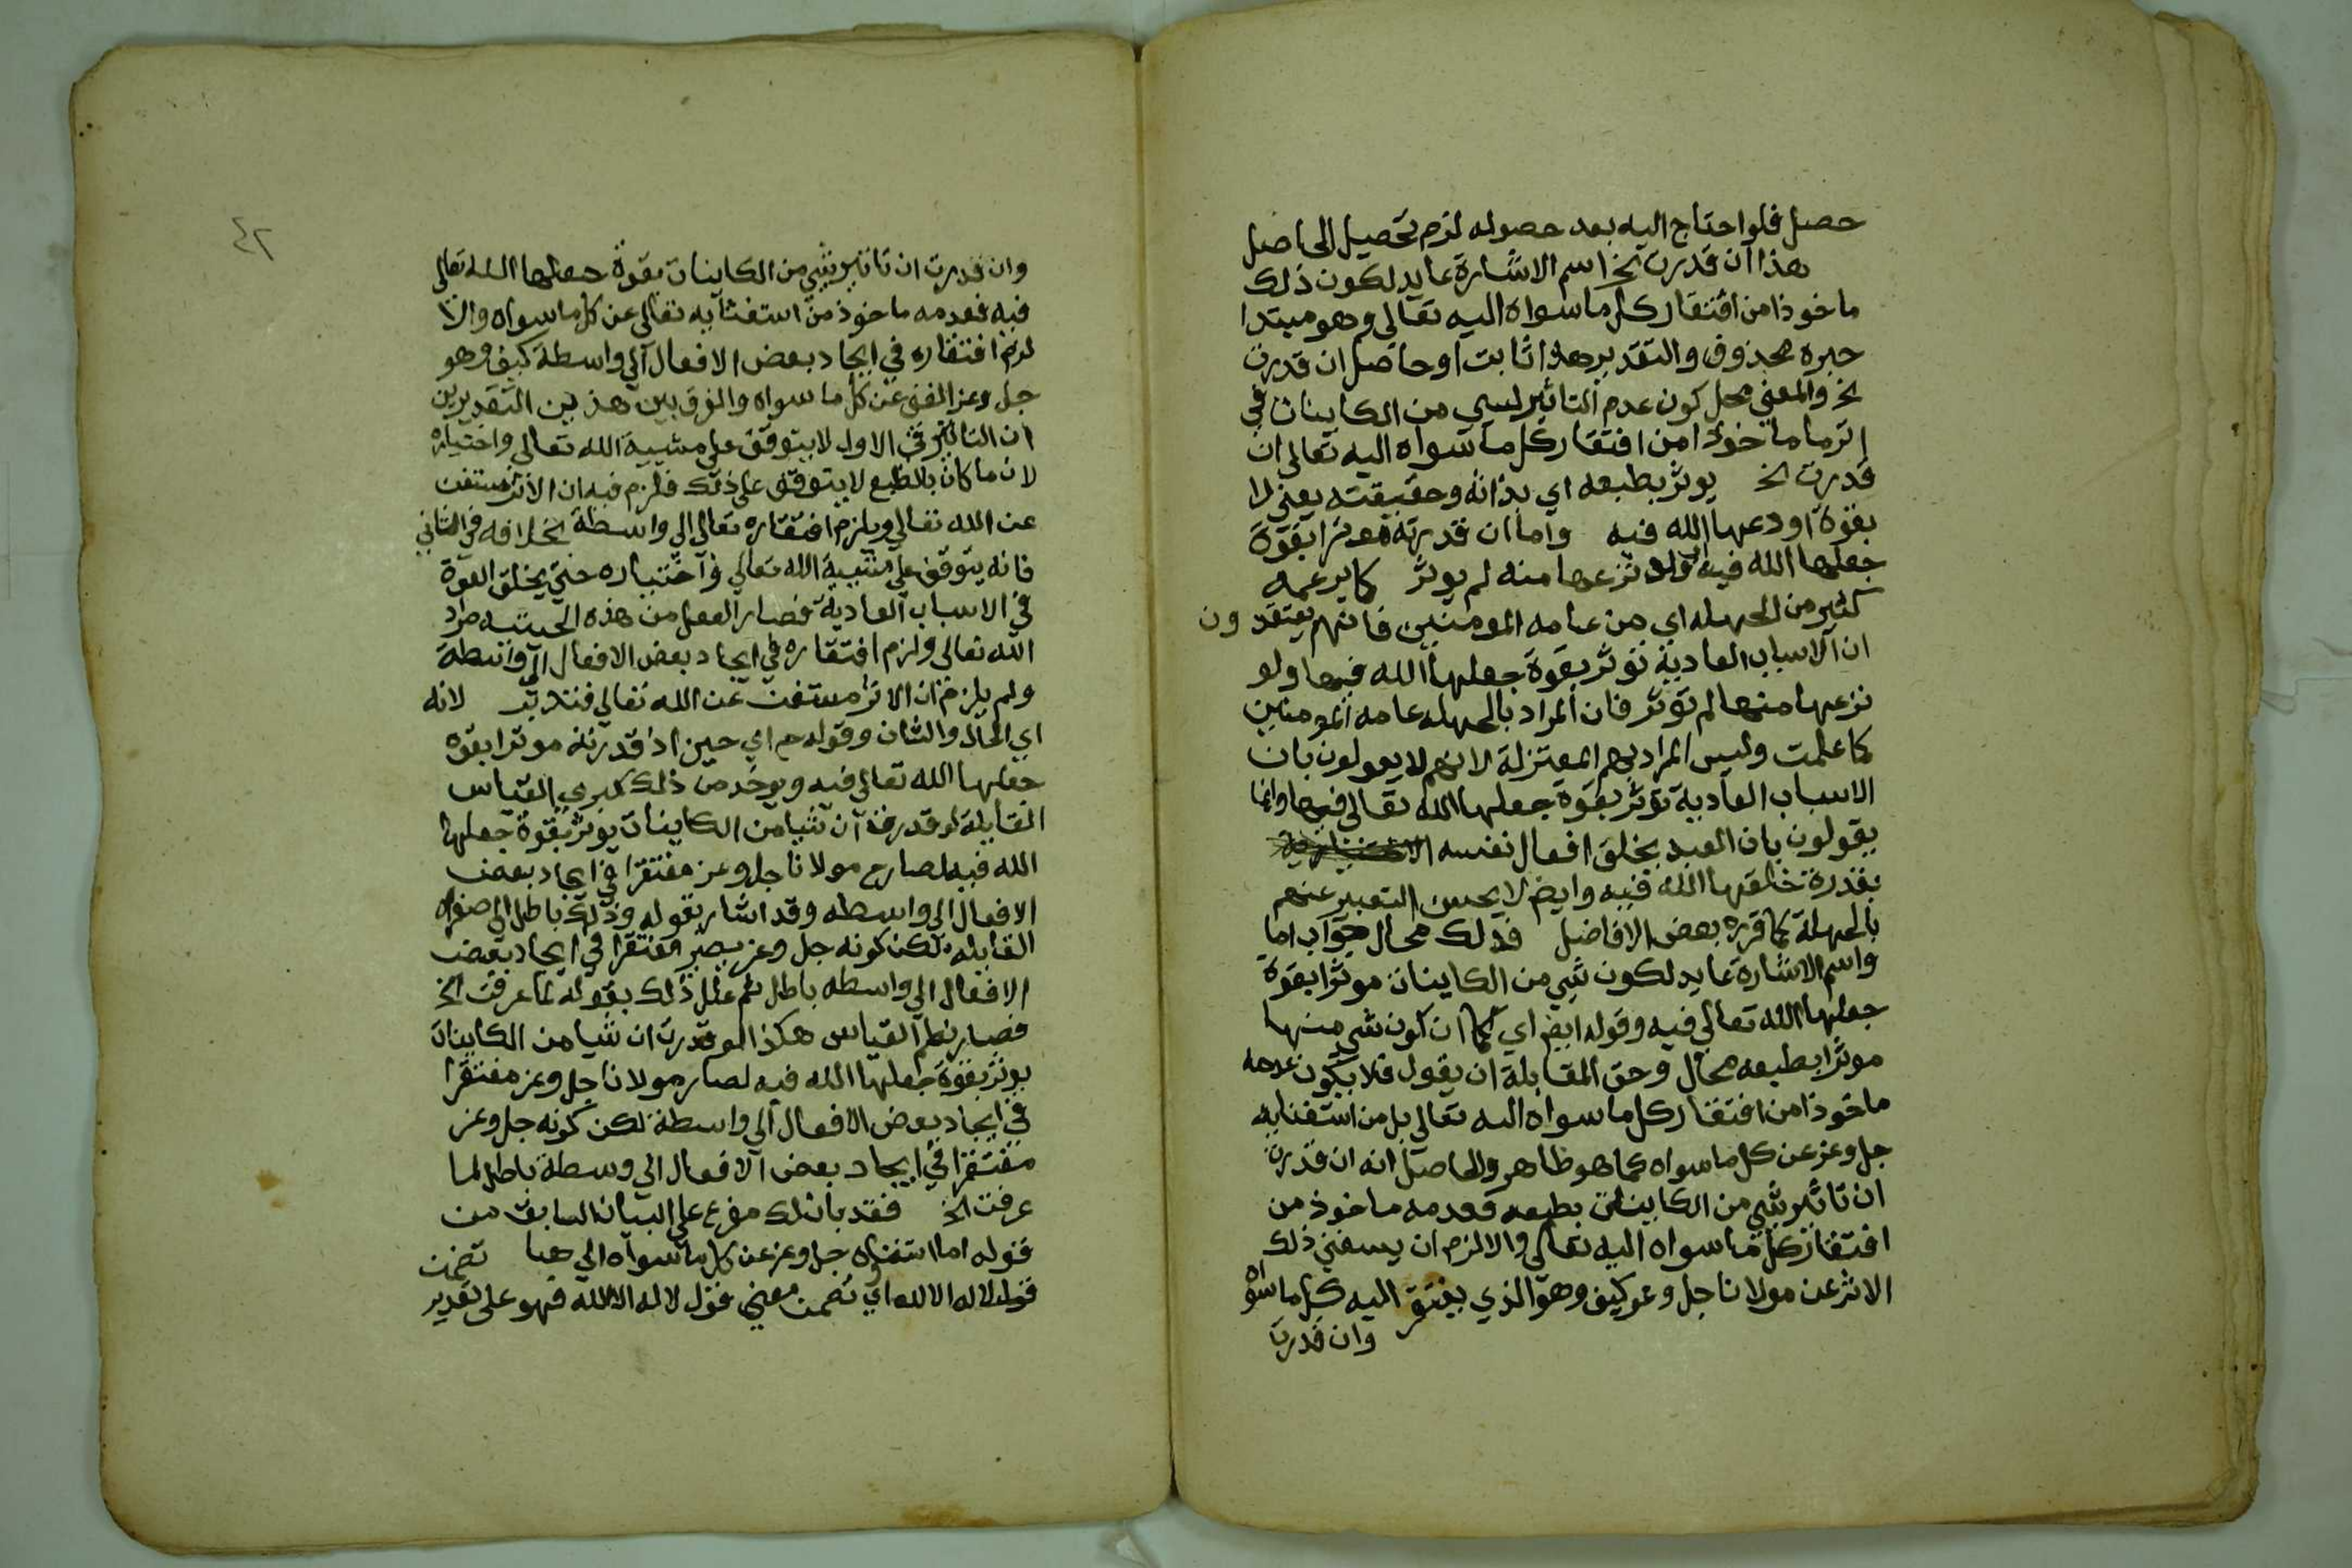 حصل فلو احتاج اليه بعد حصوله لزم تحصيل الحاصل
هذا ان قدرت الخ اسم الاشارة عايد لكون ذلك
ماخوذا من افتقار كل ما سواه اليه تعالى وهو مبتدا
خبره محذوف والتقدير هذا ثابت او حاصل ان قدرت
الخ والمعنى محل كون عدم التاثير لشي من الكاينات في
اثر ما ماخوذا من افتقار كل ما سواه اليه تعالى ان
قدرت الخ يوثر بطبعه اي بذاته وحقيقته يعني لا
بقوة اودعها الله فيه واما ان قدرته موثرا بقوة
جعلها الله فيه ولو نزعها منه لم يوثر كما يزعمه
كثير من الجهله اي من عامه المومنين فانهم يعتقدون
ان الاسباب العادية توثر بقوة جعلها الله فيها ولو
نزعها منها لم توثر فان المراد بالجهله عامه المومنين
كما علمت وليس المراد بهم المعتزلة لانهم لا يقولون بان
الاسباب العادية توثر بقوة جعلها الله تعالى فيها وانما
يقولون بان العبد يخلق افعال نفسه الاختيارية
بقدرة خلقها الله فيه وايضا لا يحسن التعبير عنهم
بالجهلة كما قرره بعض الافاضل فذلك محال جواب اما
واسم الاشارة عايد لكون شي من الكاينات موثرا بقوة
جعلها الله تعالى فيه وقوله ايضا اي كما ان كون شي منها
موثرا بطبعه محال وحق المقابلة ان يقول فلا يكون عدمه
ماخوذا من افتقار كل ما سواه اليه تعالى بل من استغنايه
جل وعز عن كل ما سواه كما هو ظاهر والحاصل انه ان قدرت
ان تاثير شي من الكاينات بطبعه فعدمه ماخوذ من
افتقار كل ما سواه اليه تعالى والا لزم ان يستغني ذلك
الاثر عن مولانا جل وعز كيف وهو الذي يفتقر اليه كل ما سواه
وان قدرت
٤٢
وان قدرت ان تاثير شي من الكاينات بقوة جعلها الله تعالى
فيه فعدمه ماخوذ من استغنايه تعالى عن كل ما سواه والا
لزم افتقاره في ايجاد بعض الافعال الى واسطة كيف وهو
جل وعز الغني عن كل ما سواه والفرق بين هذين التقديرين
ان التاثير في الاول لا يتوقف على مشيية الله تعالى واختياره
لان ما كان بالطبع لا يتوقف على ذلك فلزم فيه ان الاثر مستغن
عن الله تعالى ويلزم افتقاره تعالى الى واسطة بخلافه في الثاني
فانه يتوقف على مشيية الله تعالى واختياره حتى يخلق القوة
في الاسباب العادية فصار الفعل من هذه الحيثيه مراد
الله تعالى ولزم افتقاره في ايجاد بعض الافعال الى واسطة
ولم يلزم ان الاثر مستغن عن الله تعالى فتدبر لانه
اي الحال والشان وقوله ح اي حين اذ قدرته موثرا بقوه
جعلها الله تعالى فيه ويوخذ من ذلك كبرى القياس
القايلة لو قدرت ان شيا من الكاينات يوثر بقوة جعلها
الله فيه لصار ح مولانا جل وعز مفتقرا في ايجاد بعض
الافعال الى واسطه وقد اشار بقوله وذلك باطل الى صغراه
القايله لكن كونه جل وعز يصير مفتقرا في ايجاد بعض
الافعال الى واسطه باطل ثم علل ذلك بقوله لما عرفت الخ
فصار نظم القياس هكذا لو قدرت ان شيا من الكاينات
يوثر بقوة جعلها الله فيه لصار مولانا جل وعز مفتقرا
في ايجاد بعض الافعال الى واسطة لكن كونه جل وعز
مفتقرا في ايجاد بعض الافعال الى وسطة باطل لما
عرفت الخ فقد بان لك مفرع على البيان السابق من
قوله اما استغناوه جل وعز عن كل ما سواه الى هنا تضمن
قول لا اله الا الله اي تضمن معنى قول لا اله الا الله فهو على تقدير